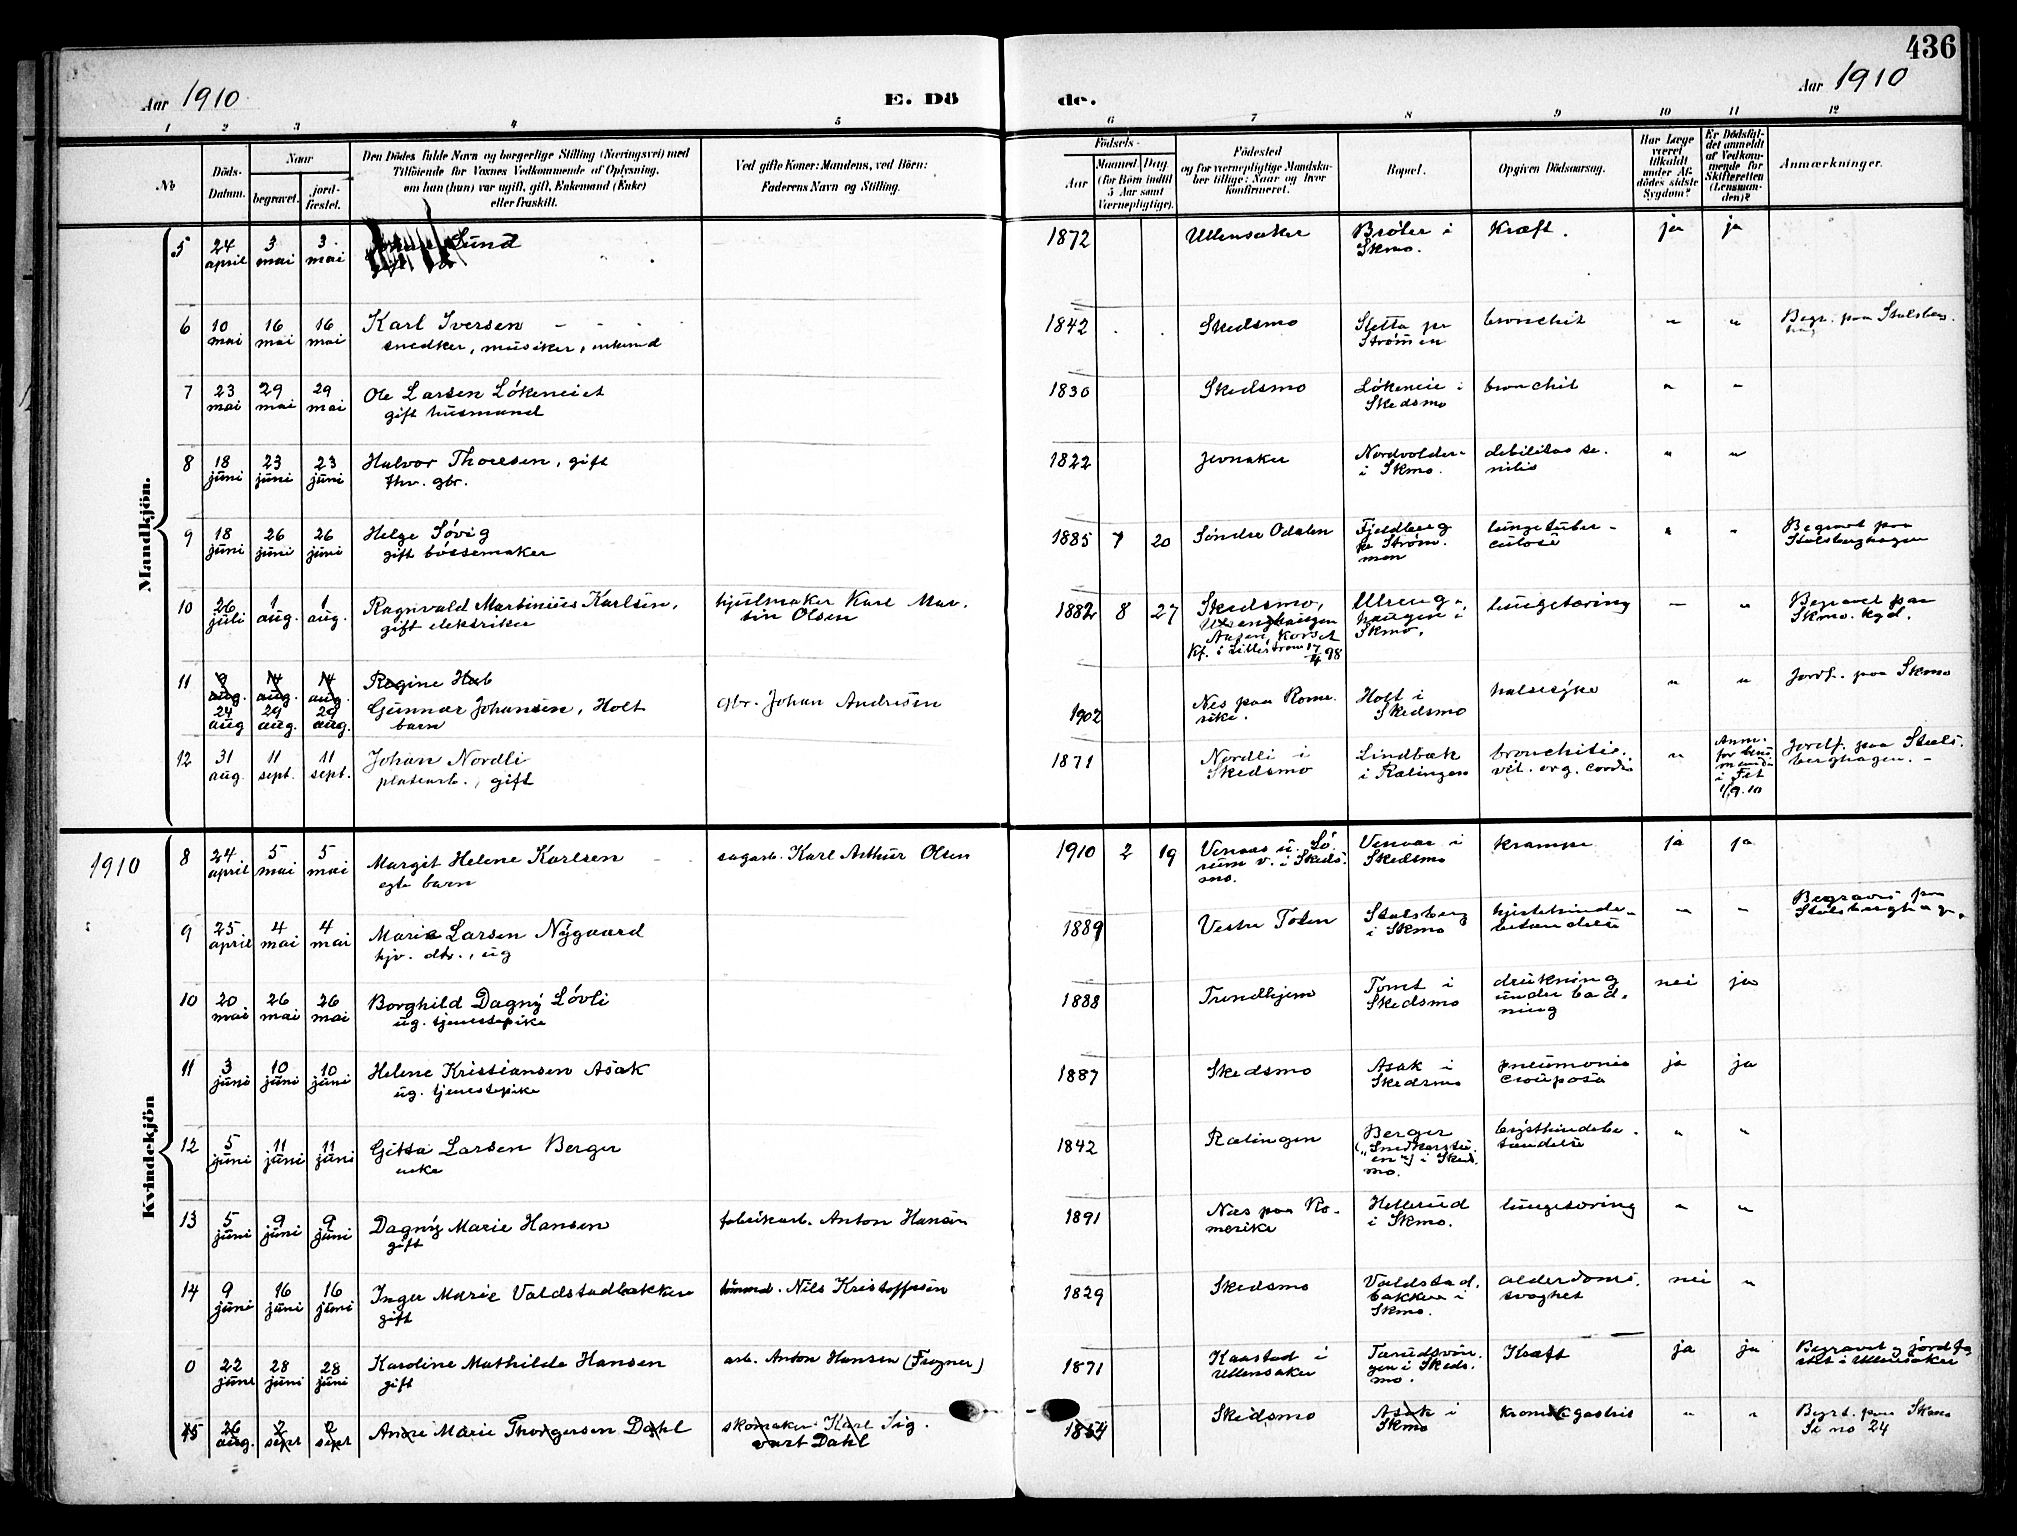 436
Aar 1910
E. Dö
de.
Aar 1910
1 2 3 4 5 6 7 8 9 10 11 12
No
Döds-
Datum.
Naar
begravet.
jord-
fæstet.
Den Dödes fulde Navn og borgerlige Stilling (Næringsvei) med
Tilföiende for Voxnes Vedkommende af Oplysning,
om han (hun) var ugift, gift, Enkemand (Enke)
eller fraskilt.
Ved gifte Koner: Mandens, ved Börn:
Faderens Navn og Stilling.
Födsels-
Aar
Maaned Dag
(for Börn indtil
5 Aar samt
Værnepligtige).
Födested
og for værnepligtige Mandska-
ber tillige: Naar og hvor
konfirmeret.
Bopæl.
Opgiven Dödsaarsag.
Har Læge
været
tilkaldt
under Af-
dödes sidste
Sygdom?
Er Dödsfal-
det anmeldt
af Vedkom-
mende for
Skifteretten
(Lensman-
den)?
Anmærkninger.
Mandkjön.
5 24 april 3 mai 3 mai Lund 1872 Ullensaker Bröter i Skmo. Kræft. ja ja
6 10 mai 16 mai 16 mai Karl Iversen
snedker, musiker, 1842 Skedsmo Sletta pr Strömmen bronchit " " Begr. paa Stalsberg-
7 23 mai 29 mai 29 mai Ole Larsen Lökeneiet
gift husmand 1830 Skedsmo Lökeneie i Skedsmo bronchit " "
8 18 juni 23 juni 23 juni Halvor Thoresen, gift
fhv. gbr. 1822 Jevnaker Nordvolder- i Skmo. debilitas se-
nilis " "
9 18 juni 26 juni 26 juni Helge Sövig
gift bössemaker 1885 7 20 Söndre Odalen Fjeldberg pr Ström-
men lungetuber-
culose " " Begravet paa
Stalsberghagen
10 26 juli 1 aug. 1 aug. Ragnvald Martinius Karlsen,
gift elektriker hjulmaker Karl Mar-
tin Olsen 1882 8 27 Skedsmo,
Kf. i Lilleström 17/4 98 Ulreng-
haugen i
Skmo. lungetæring – " Begravet paa
Skmo. kgd.
11 9 aug. 14 aug. 14 aug. Regine
24 aug 29 aug. 29 aug. Gunnar Johansen, Holt
barn gbr. Johan Andresen 1902 Nes paa Rome-
rike. Holt i
Skedsmo halssyke " " Jordf. paa Skmo
12 31 aug. 11 sept. 11 sept. Johan Nordli
platearb., gift 1871 Nordli i
Skedsmo Lindbæk
i Rælingen bronchitis.
vit. org. cordis " Anm.
for
i Fet
1/9.10 Jordf. paa Stals-
berghagen. –
1910
Kvindekjön
8 24 april 5 mai 5 mai Margit Helene Karlsen
egte barn sagarb. Karl Arthur Olsen 1910 2 19 Venaas u. Lö-
rum v. i Skeds-
mo. Venaas i
Skedsmo krampe ja ja
9 25 april 4 mai 4 mai Marie Larsen Nygaard
hjv. dtr., ug 1889 Vestre Toten Stalsberg
i Skmo hjertehinde-
betændelse " " Begravet paa
Stalsberghagen
10 20 mai 26 mai 26 mai Borghild Dagny Lövli
ug. tjenestepike 1888 Trondhjem Tomt i
Skedsmo drukning
under bad-
ning nei ja
11 3 juni 10 juni 10 juni Helene Kristiansen Asak
ug. tjenestepike 1887 Skedsmo Asak i
Skedsmo pneumonia
crouposa ja ja
12 5 juni 11 juni 11 juni Gitta Larsen Berger
enke 1842 Rælingen Berger
("Snekkerstu-
en") i Skeds-
mo. brysthindebe-
tændelse " "
13 5 juni 9 juni 9 juni Dagny Marie Hansen
gift fabrikarb. Anton Hansen 1891 Næs paa Ro-
merike Hellerud
i Skmo. lungetæring " "
14 9 juni 16 juni 16 juni Inger Marie Valdstadbakken
gift tömmd. Nils Kristoffersen 1829 Skedsmo Valdstad-
bakken i
Skmo. alderdoms-
svaghet nei "
0 22 juni 28 juni 28 juni Karoline Mathilde Hansen
gift arb. Anton Hansen (Frogner) 1871 Kaastad i
Ullensaker Tærudsvin-
gen i Skeds-
mo. Kræft ja ja Begravet og jordfæ-
stet i Ullensaker
15 26 aug. 2 sept 2 sept Anne Marie Thorgersen Dahl skomaker Karl Sig-
vart Dahl 1854 Skedsmo Asak i
Skmo kronisk gastrit " " Begrt. paa Skmo
Se no 24